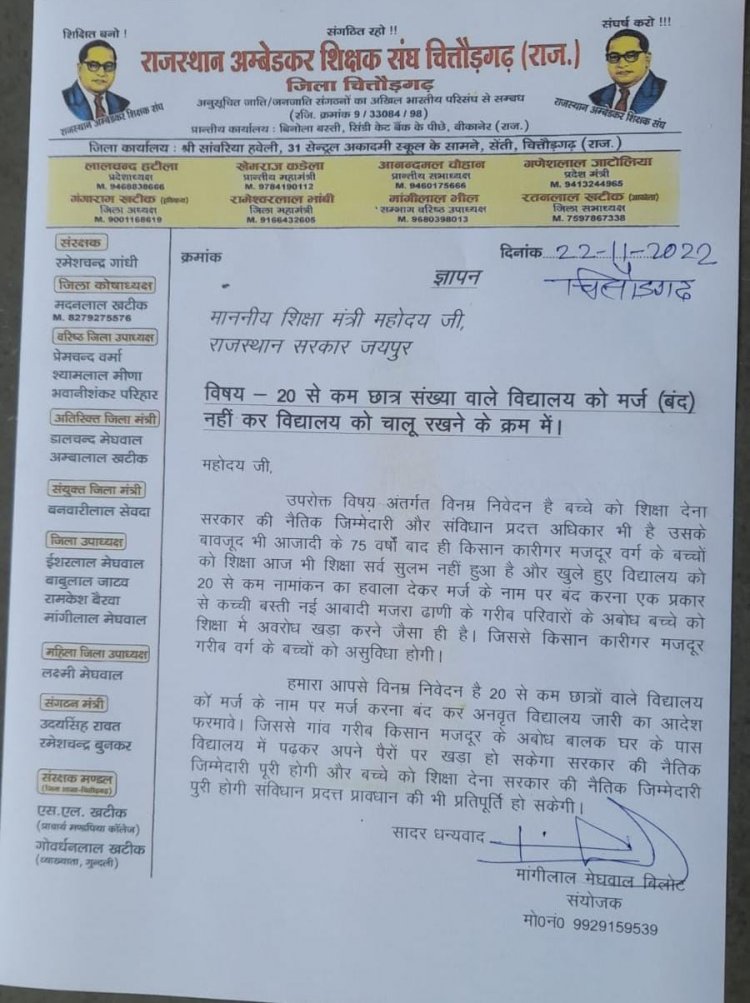 शिक्षित बनो !
संगठित रहो !!
संघर्ष करो !!!
राजस्थान अम्बेडकर शिक्षक संघ चित्तौड़गढ़ (राज.)
जिला चित्तौड़गढ़
राजस्थान अम्बेडकर शिक्षक संघ
राजस्थान अम्बेडकर शिक्षक संघ
अनुसूचित जाति/जनजाति संगठनों का अखिल भारतीय परिसंघ से सम्बध
(रजि. क्रमांक 9 / 33084 / 98)
प्रान्तीय कार्यालय : बिनोला बस्ती, सिंडी केट बैंक के पीछे, बीकानेर (राज.)
जिला कार्यालय : श्री सांवरिया हवेली, 31 सेन्ट्रल अकादमी स्कूल के सामने, सेंती, चित्तौड़गढ़ (राज.)
लालचन्द हटीला
प्रदेशाध्यक्ष
M. 9468838666
खेमराज कडेला
प्रान्तीय महामंत्री
M. 9784190112
आनन्दमल चौहान
प्रान्तीय सभाध्यक्ष
M. 9460175666
गणेशलाल जाटोलिया
प्रदेश मंत्री
M. 9413244965
गंगाराम खटीक
जिला अध्यक्ष
M. 9001168619
रामेश्वरलाल भांबी
जिला महामंत्री
M. 9166432605
मांगीलाल भील
सम्भाग वरिष्ठ उपाध्यक्ष
M. 9680398013
रतनलाल खटीक
जिला सभाध्यक्ष
M. 7597867338
संरक्षक
रमेशचन्द्र गांधी
जिला कोषाध्यक्ष
मदनलाल खटीक
M. 8279275576
वरिष्ठ जिला उपाध्यक्ष
प्रेमचन्द वर्मा
श्यामलाल मीणा
भवानीशंकर परिहार
अतिरिक्त जिला मंत्री
डालचन्द मेघवाल
अम्बालाल खटीक
संयुक्त जिला मंत्री
बनवारीलाल सेवदा
जिला उपाध्यक्ष
ईशरलाल मेघवाल
बाबुलाल जाटव
रामकेश बैरवा
मांगीलाल मेघवाल
महिला जिला उपाध्यक्ष
लक्ष्मी मेघवाल
संगठन मंत्री
उदयसिंह रावत
रमेशचन्द्र बुनकर
संरक्षक मण्डल
एस.एल. खटीक
(प्राचार्य मण्डपिया कॉलेज)
गोवर्धनलाल खटीक
(व्याख्याता, गुन्दली)
क्रमांक
दिनांक 22-11-2022
चित्तौड़गढ़
ज्ञापन
माननीय शिक्षा मंत्री महोदय जी,
राजस्थान सरकार जयपुर
विषय – 20 से कम छात्र संख्या वाले विद्यालय को मर्ज (बंद)
नहीं कर विद्यालय को चालू रखने के क्रम में।
महोदय जी,
उपरोक्त विषय अंतर्गत विनम्र निवेदन है बच्चे को शिक्षा देना
सरकार की नैतिक जिम्मेदारी और संविधान प्रदत्त अधिकार भी है उसके
बावजूद भी आजादी के 75 वर्षों बाद ही किसान कारीगर मजदूर वर्ग के बच्चों
को शिक्षा आज भी शिक्षा सर्व सुलभ नहीं हुआ है और खुले हुए विद्यालय को
20 से कम नामांकन का हवाला देकर मर्ज के नाम पर बंद करना एक प्रकार
से कच्ची बस्ती नई आबादी मजरा ढाणी के गरीब परिवारों के अबोध बच्चे को
शिक्षा में अवरोध खड़ा करने जैसा ही है। जिससे किसान कारीगर मजदूर
गरीब वर्ग के बच्चों को असुविधा होगी।
हमारा आपसे विनम्र निवेदन है 20 से कम छात्रों वाले विद्यालय
कों मर्ज के नाम पर मर्ज करना बंद कर अनवृत विद्यालय जारी का आदेश
फरमावे। जिससे गांव गरीब किसान मजदूर के अबोध बालक घर के पास
विद्यालय में पढकर अपने पैरों पर खडा हो सकेगा सरकार की नैतिक
जिम्मेदारी पूरी होगी और बच्चे को शिक्षा देना सरकार की नैतिक जिम्मेदारी
पुरी होगी संविधान प्रदत्त प्रावधान की भी प्रतिपूर्ति हो सकेगी।
सादर धन्यवाद
मांगीलाल मेघवाल बिलोट
संयोजक
मो0नं0 9929159539